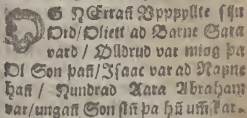 OG NERrañ Vppfyllte sijn
Ord/Oliett ad Barne Sara
vard / Olldrud var miog þa
Ol Son þañ/Isaac var ad Nafne
hañ / Nundrad Aara Abraham
var/ungañ Son siñ þa hñ umskar.